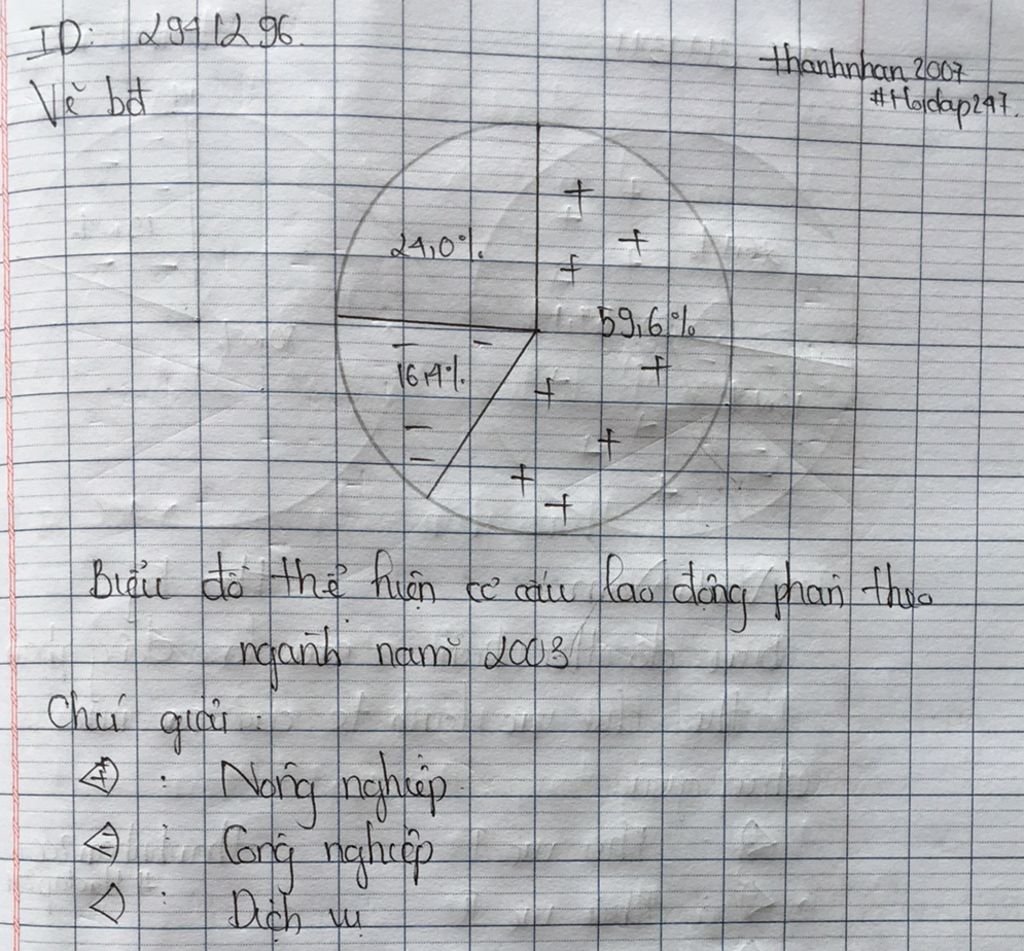 ID: 2941296.
thanhnhan2007
#Hoidap247.
Vẽ bđ
24,0%.
59,6%
16,4%.
Biểu đồ thể hiện cơ cấu lao động phân theo
ngành năm 2003
Chú giải:
+ : Nông nghiệp
- : Công nghiệp
: Dịch vụ